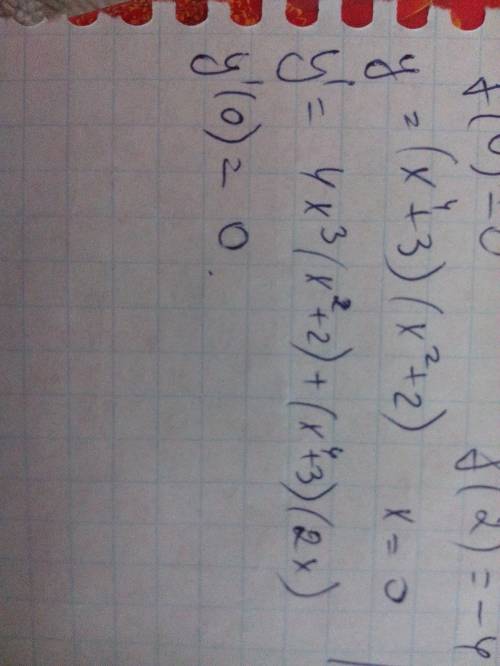 f(0) = 0 f(2) = -4
y = (x⁴+3)(x²+2) x = 0
y' = 4x³(x²+2)+(x⁴+3)(2x)
y'(0) = 0.